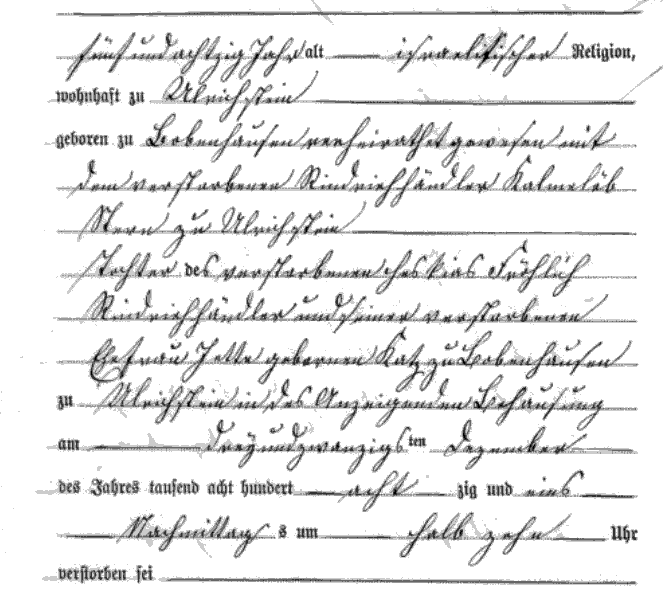 fünf und achtzig Jahr alt — israelitischer Religion,
wohnhaft zu Ulrichstein
geboren zu Bobenhausen verheirathet gewesen mit
dem verstorbenen Rindviehhändler Kalmelöb
Stern zu Ulrichstein
Tochter des verstorbenen Heskias Fröhlich
Rindviehhändler und seiner verstorbenen
Ehefrau Jette gebornen Katz zu Bobenhausen
zu Ulrichstein in des Anzeigenden Behausung
am — dreyundzwanzigsten Dezember
des Jahres tausend acht hundert — acht — zig und eins
— Nachmittags um — halb zehn — Uhr
verstorben sei